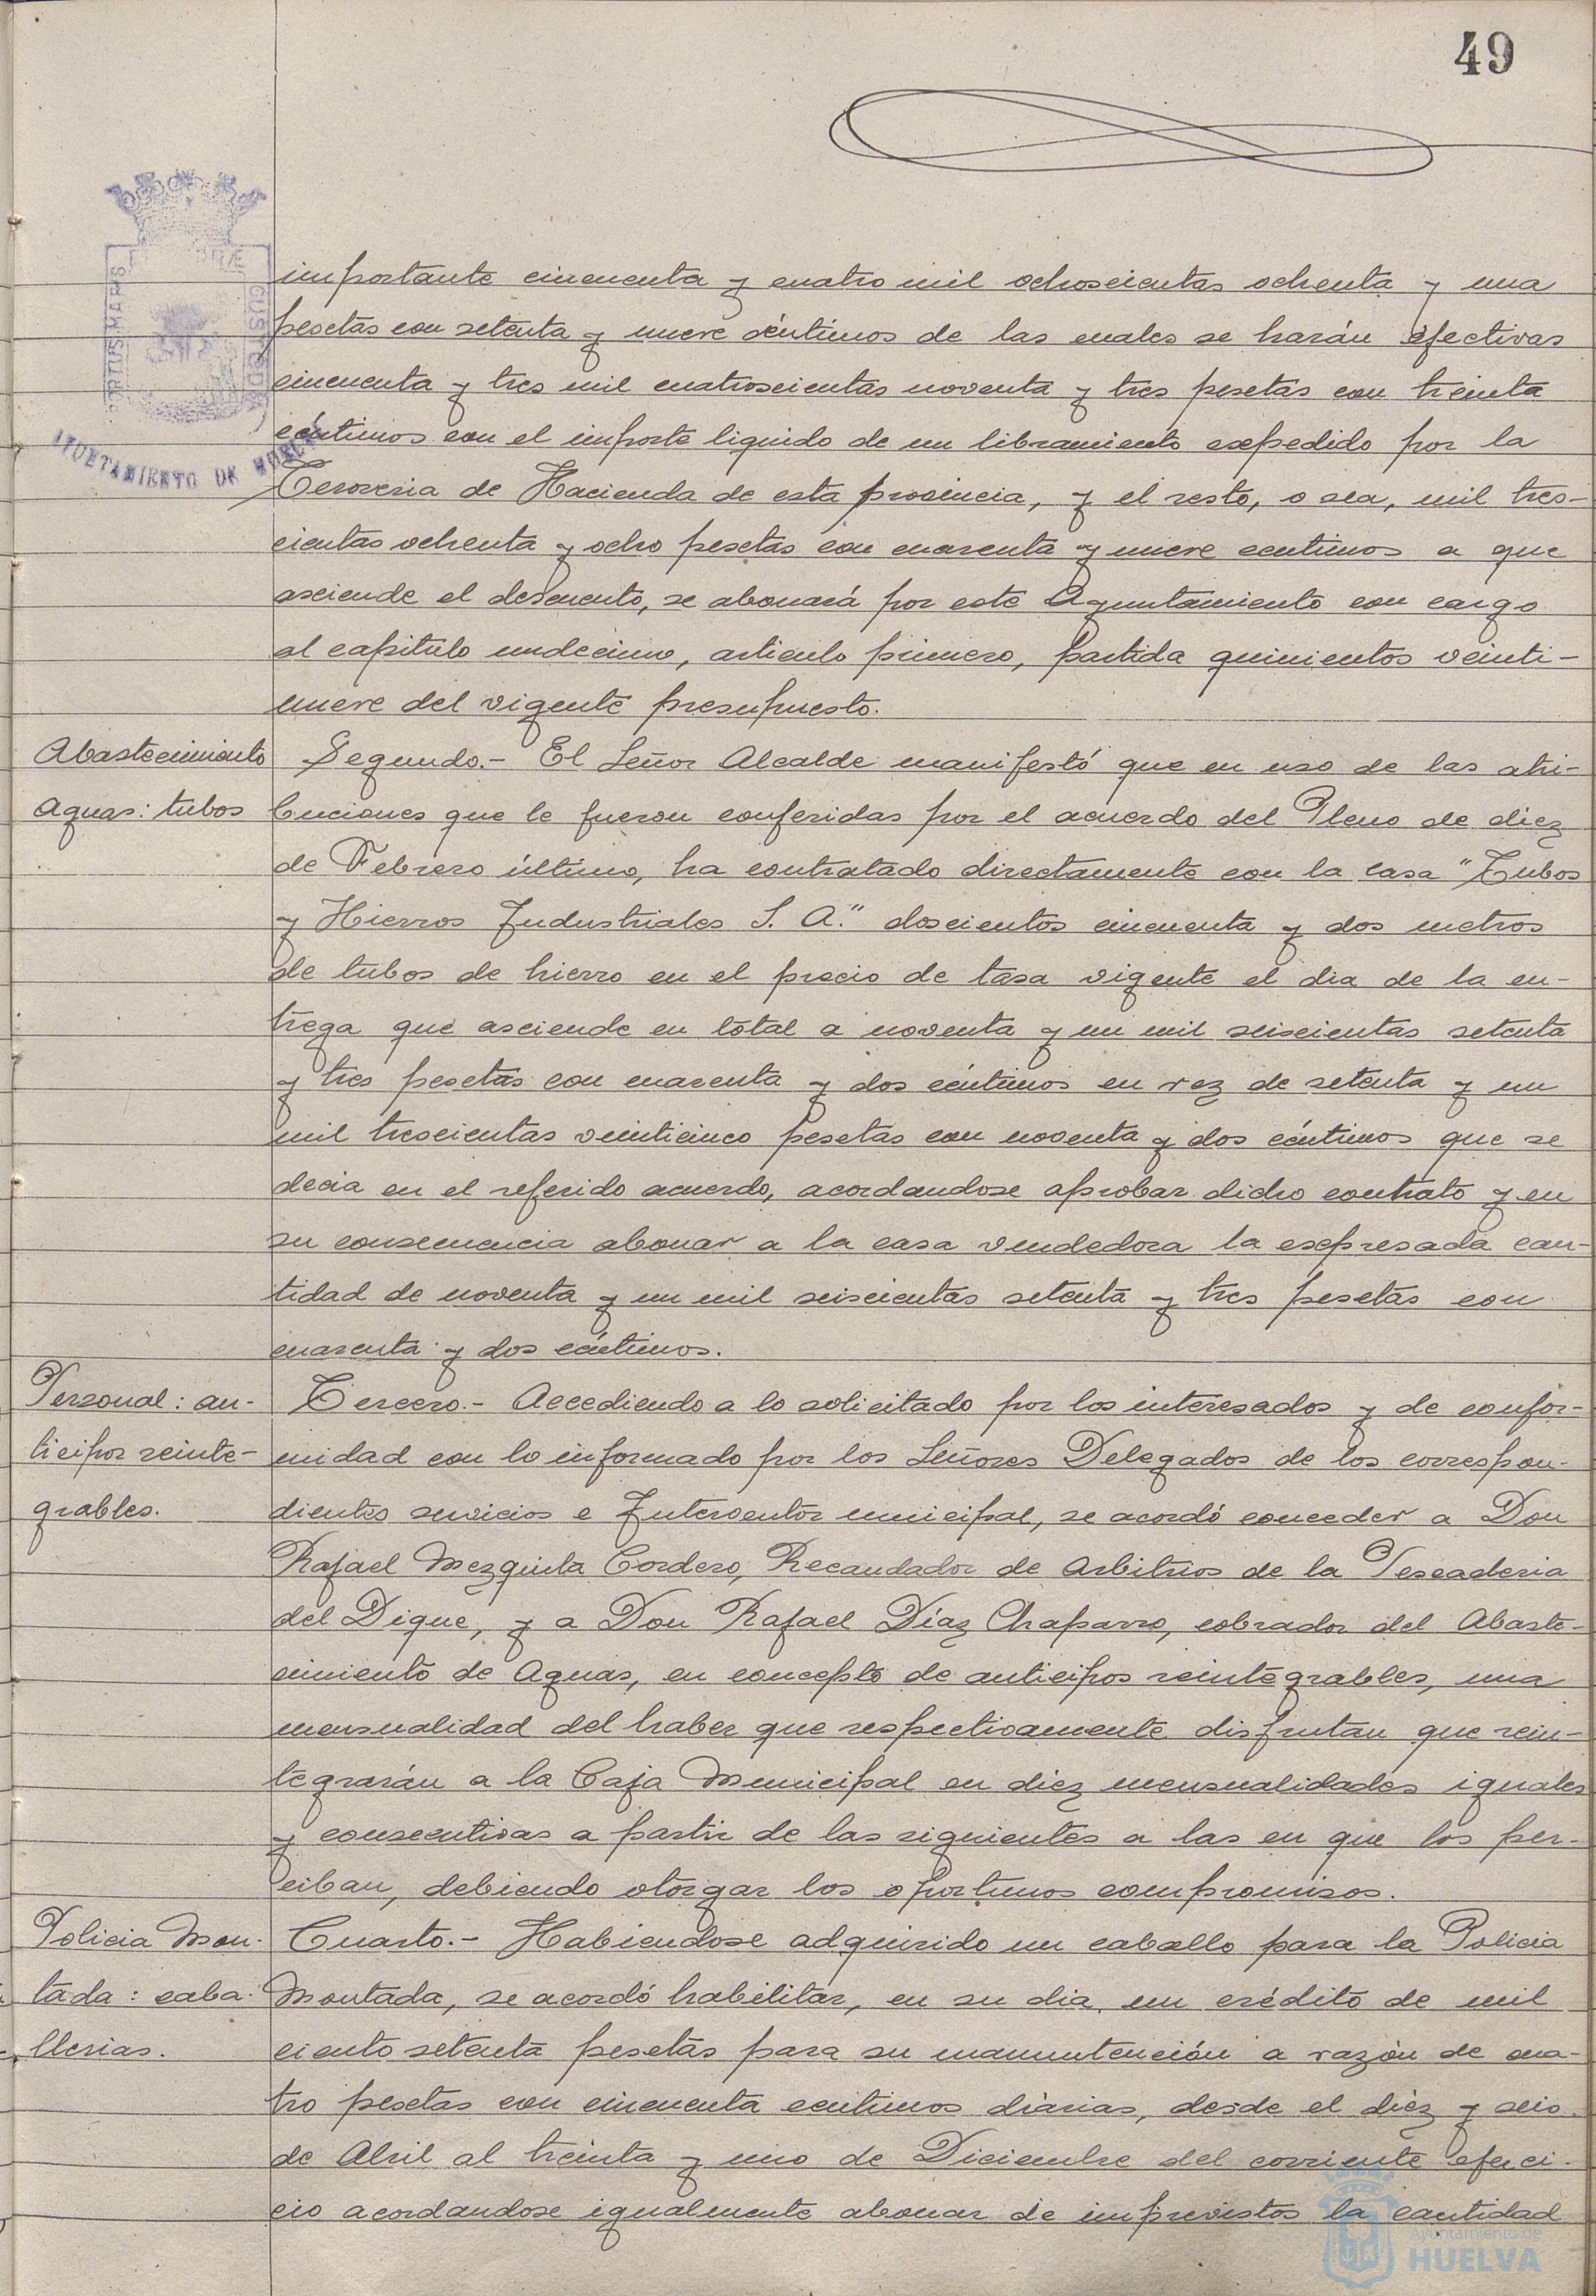 49
importante cincuenta y cuatro mil ochoscientas ochenta y una
pesetas con setenta y nueve céntimos de las cuales se harán efectivas
cincuenta y tres mil cuatroscientas noventa y tres pesetas con treinta
céntimos con el importe liquido de un libramiento expedido por la
Tesoreria de Hacienda de esta provincia, y el resto, o sea, mil tres-
cientas ochenta y ocho pesetas con cuarenta y nueve centimos a que
asciende el descuento, se abonará por este Ayuntamiento con cargo
al capitulo undecimo, articulo primero, partida quinientos veinti-
nueve del vigente presupuesto.
Abastecimiento
Aguas: tubos
Segundo.- El Señor Alcalde manifestó que en uso de las atri-
buciones que le fueron conferidas por el acuerdo del Pleno de diez
de Febrero último, ha contratado directamente con la casa "Tubos
y Hierros Industriales S. A." doscientos cincuenta y dos metros
de tubos de hierro en el precio de tasa vigente el dia de la en-
trega que asciende en total a noventa y un mil seiscientas setenta
y tres pesetas con cuarenta y dos céntimos en vez de setenta y un
mil trescientas veinticinco pesetas con noventa y dos céntimos que se
decia en el referido acuerdo, acordandose aprobar dicho contrato y en
su consecuencia abonar a la casa vendedora la expresada can-
tidad de noventa y un mil seiscientas setenta y tres pesetas con
cuarenta y dos céntimos.
Personal: an-
ticipos reinte-
grables.
Tercero.- Accediendo a lo solicitado por los interesados y de confor-
midad con lo informado por los Señores Delegados de los correspon-
dientes servicios e Interventor municipal, se acordó conceder a Don
Rafael Mezquita Cordero, Recaudador de Arbitrios de la Pescaderia
del Dique, y a Don Rafael Díaz Chaparro, cobrador del Abaste-
cimiento de Aguas, en concepto de anticipos reintegrables, una
mensualidad del haber que respectivamente disfrutan que rein-
tegrarán a la Caja Municipal en diez mensualidades iguales
y consecutivas a partir de las siguientes a las en que los per-
ciban, debiendo otorgar los oportunos compromisos.
Policia Mon-
tada: caba-
llerias.
Cuarto.- Habiendose adquirido un caballo para la Policia
Montada, se acordó habilitar, en su dia, un crédito de mil
ciento setenta pesetas para su manuntención a razón de cua-
tro pesetas con cincuenta centimos diarias, desde el diez y seis
de Abril al treinta y uno de Diciembre del corriente ejerci-
cio acordandose igualmente abonar de imprevistos la cantidad
PORTUS MARIS
CUSTODIA
AYUNTAMIENTO DE HUELVA
Ayuntamiento de
HUELVA